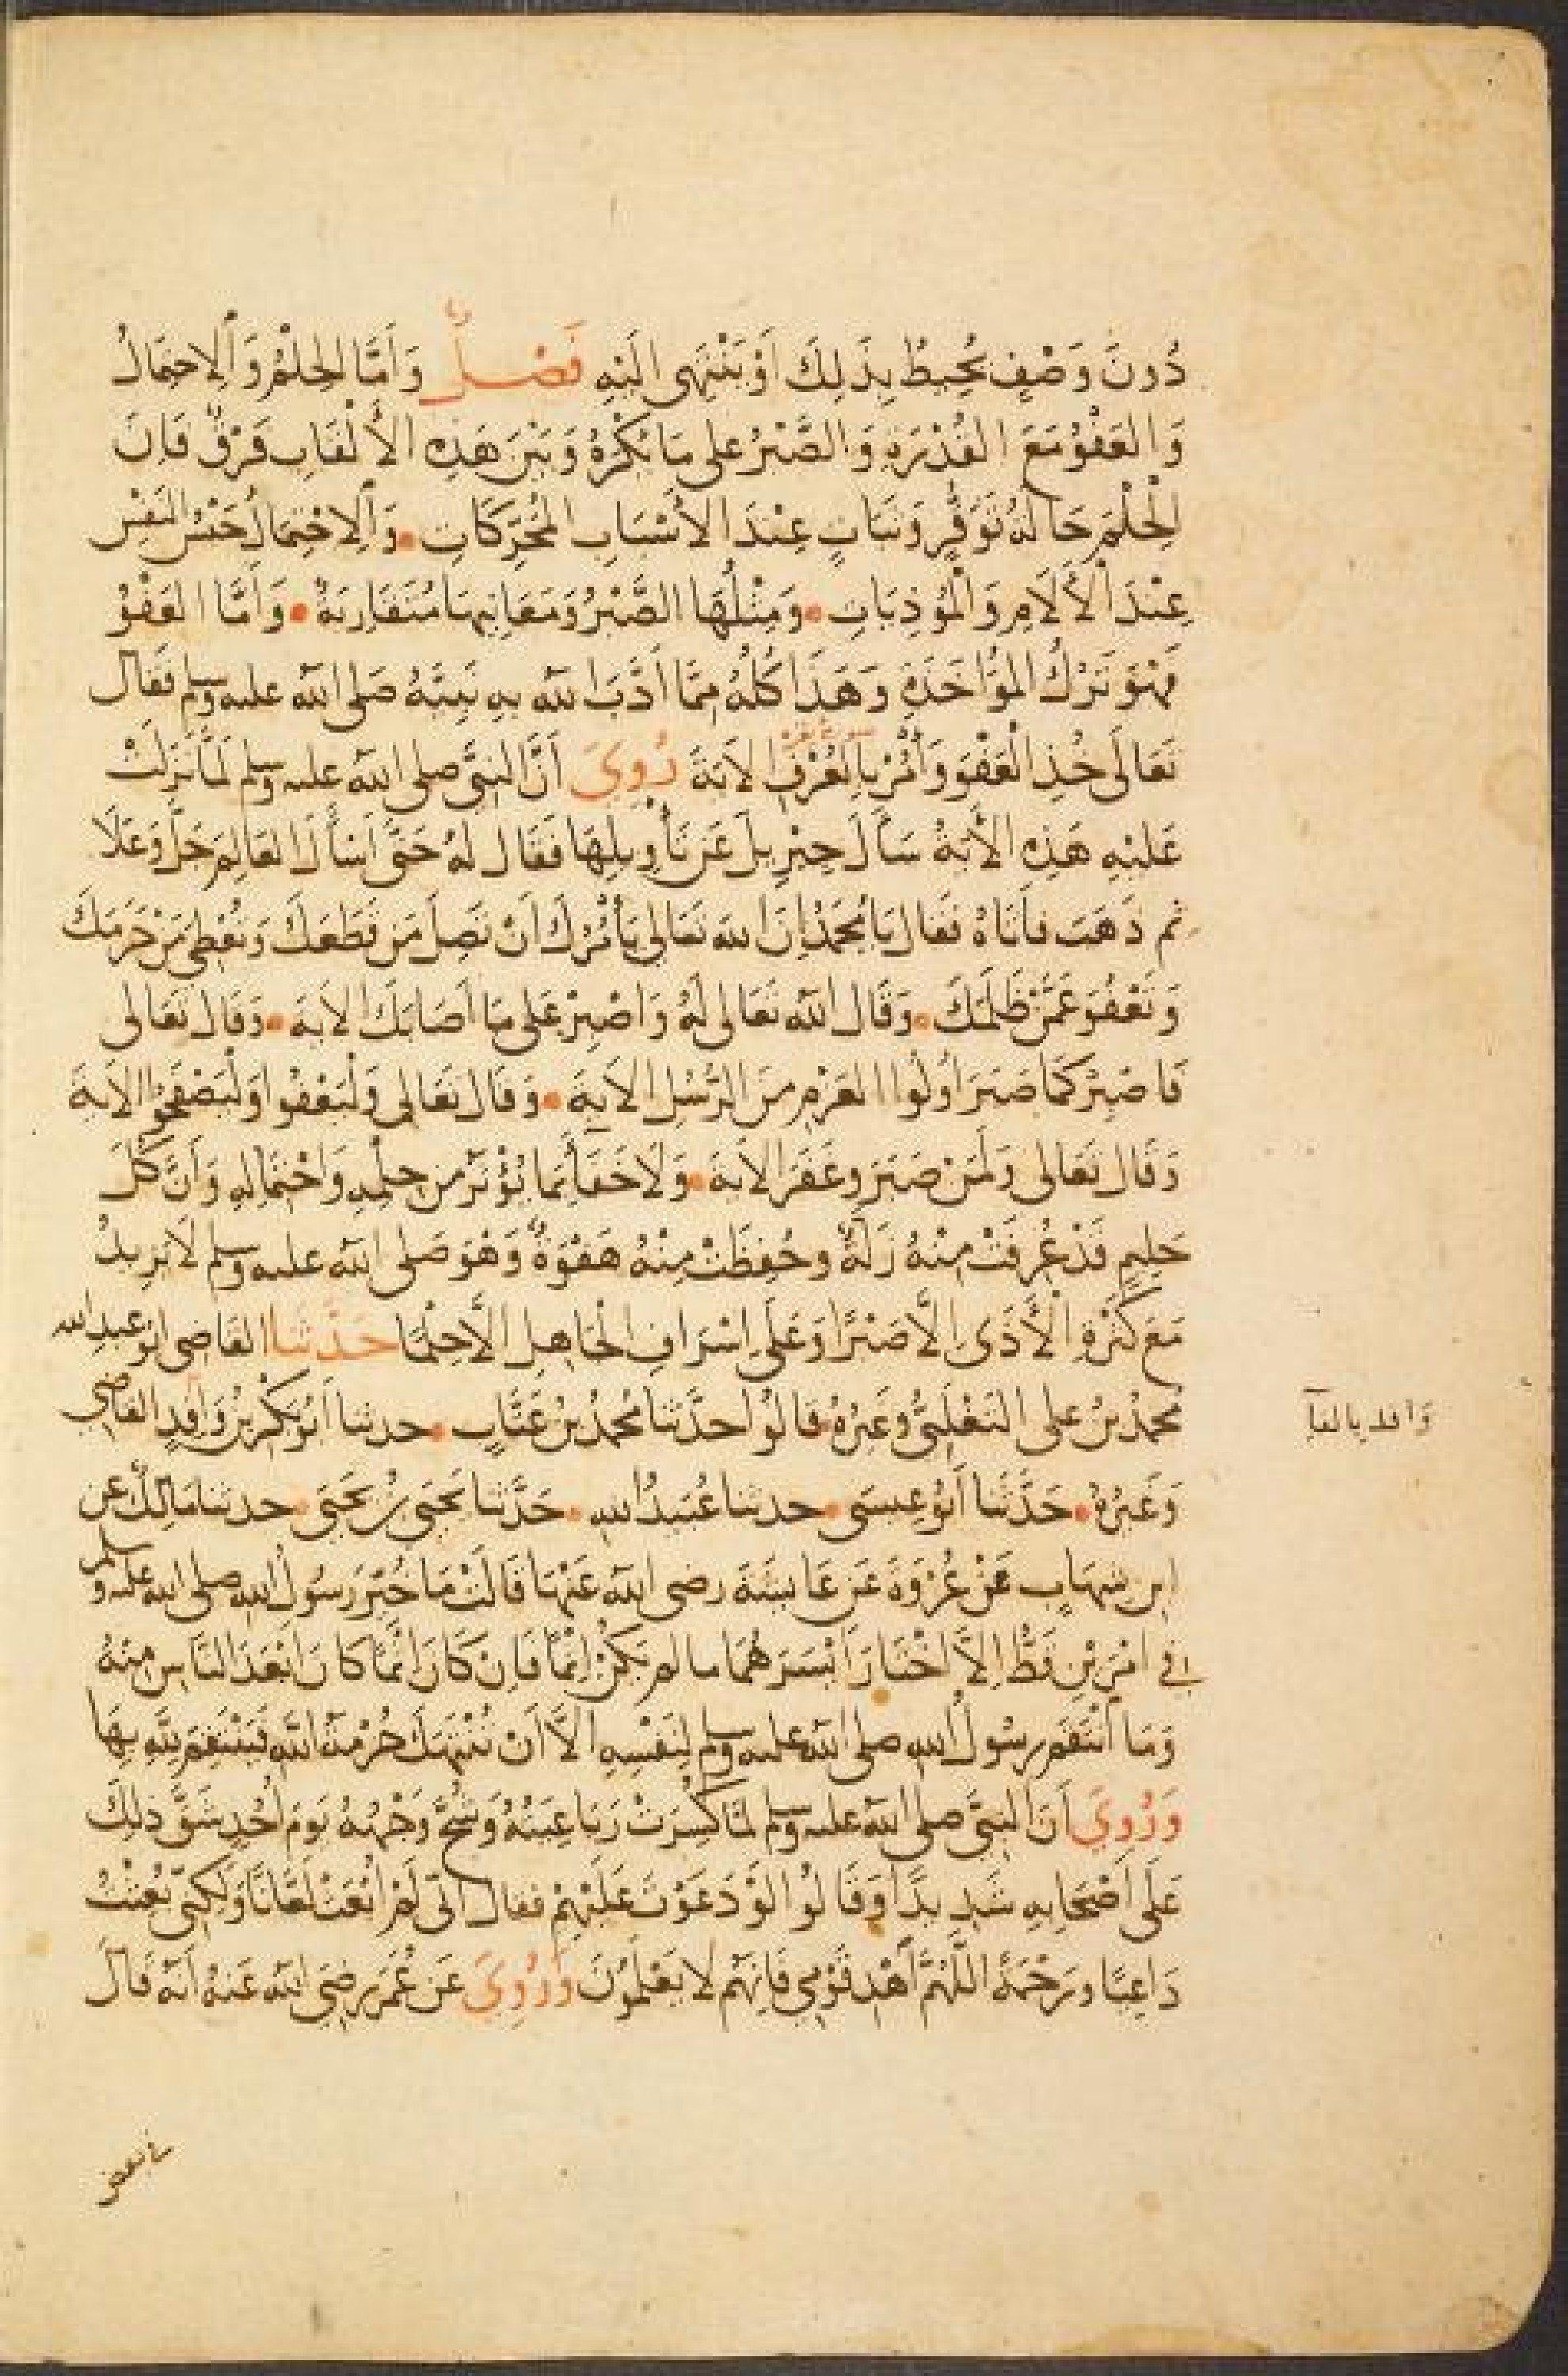 دُونَ وَصْفٍ يُحِيطُ بِذَلِكَ أَوْ يَنْتَهِى إلَيْهِ فَصْلٌ وَأَمَّا الحِلْمُ وَالاحتِمَالُ
وَالعَفْوُ مَعَ القُدْرَةِ وَالصَّبْرُ على مَا يُكْرَهُ وَبَيْنَ هَذِهِ الأَلْقَابِ فَرْقٌ فَإنَ
الحِلْمَ حَالَةُ تَوَقُّرٍ وَثَبَاتٍ عِنْدَ الأَسْبَابِ المُحَرِّكَاتِ وَالاحْتِمَالُ حَبْسُ النَفْسِ
عِنْدَ الآلَامِ وَالمُؤذِيَاتِ وَمِثْلُهَا الصَّبْرُ وَمَعَانِيهَا مُتَقَارِبَةٌ وَأمَّا العَفْوُ
فَهْوَ تَرْكُ المُؤَاخَذَةِ وَهَذَا كُلُّهُ مِمَّا أَدَّبَ الله بِهِ نَبِيَّهُ صَلى الله عليه وسلم فَقَالَ
تَعَالَى خُذِ العَفْوَ وَأْمُرْ بِالعُرْفِ الآيَةَ رُوِيَ أَنَّ النبيَّ صلى الله عليه وسلم لَمَّا نَزَلَتْ
عَلَيْهِ هَذِهِ الآيَةُ سَأَلَ جِبْرِيلَ عَن تَأْوِيلِهَا فَقَالَ لَهُ حَتَّى أَسْأَلَ العَالِمَ جَلَّ وَعَلَا
ثم ذَهَبَ فأَتَاهُ فَقَالَ يَا مُحَمَّدُ إنَ اللهَ تَعَالى يَأْمُرُكَ أنْ تَصِلَ مَن قَطَعَكَ وَتُعْطِي مَنْ حَرَمَكَ
وَتَعْفُوَ عَمَّنْ ظَلَمَكَ وَقَالَ اللهُ تَعَالى لَهُ وَاصْبِرْ عَلى مَا أَصَابَكَ الآيَة وَقَالَ تَعَالى
فَاصْبِرْ كَمَا صَبَرَ اولُوا العَزْمِ مِنَ الرُّسُلِ الآيَةَ وَقَالَ تَعَالى وَلْيَعْفُوا وَلْيَصْفَحُوا الآيَةَ
وَقَالَ تَعَالى وَلَمَنْ صَبَرَ وغَفَرَ الآيَةَ وَلَا خَفَأَ بِمَا يُؤْثَرُ مِن حِلْمِهِ وَاحْتِمَالِهِ وَأَنَّ كُلَّ
حَلِيمٍ قَدْ عُرِفَتْ مِنْهُ زَلَّةٌ وحُفِظَتْ مِنْهُ هَفْوَةٌ وَهْوَ صَلى الله عليه وسلم لَا يَزِيدُ
مَعَ كَثْرَةِ الأَذَى إلَّا صَبْرًا وَعَلَى إسْرَافِ الجَاهِلِ إلَّا حِلْمًا حَدَّثَنَا القَاضى أبو عبد الله
مُحَمَّدُ بنُ على التَغْلَبِيُّ وغَيْرُهُ قالُوا حدَّثنا مُحَمَّدُ بنُ عَتَّابٍ حدثنا أبُو بَكْرِ بْنُ وَافِدٍ القَاضِي
واقد بالقا
وَغَيْرُهُ حَدَّثَنَا أَبُو عِيسَى حدثنا عُبَيدُ اللهِ حَدَّثنا يَحْيَى بْنُ يَحْيَى حدثنا مَالِكٌ عن
ابنِ شِهَابٍ عَنْ عُرْوَةَ عَنْ عَايِشَةَ رضى الله عَنْهَا قَالَتْ مَا خُيِّرَ رَسُولُ الله صلى الله عليه وسلم
في امْرَيْنِ قَطُّ إلاَّ اخْتَارَ أَيْسَرَهُمَا ما لم يَكُنْ إثْمًا فَإنْ كَانَ إثْمًا كَانَ أَبْعَدَ النَّاسِ مِنْهُ
وَمَا انْتَقَمَ رسُولُ الله صلى الله عليه وسلم لِنَفْسِهِ إلاَّ أنْ تُنْتَهَكَ حُرْمَةُ اللهِ فَيَنْتَقِمَ لِلَّهِ بِهَا
وَرُوِيَ أنَ النبيَّ صلى الله عليه وسلم لمَّا كُسِرَتْ رَبَاعِيَتُهُ وَشُجَّ وَجْهُهُ يَومَ أُحُدٍ شَقَّ ذلِكَ
عَلَى أَصْحَابِهِ شَدِيدًا وَقَالُوا لَوْ دَعَوْتَ عَلَيْهِمْ فقال إنّى لَمْ أُبْعَثْ لَعَّانًا وَلَكِنّى بُعِثْتُ
دَاعِيًا ورَحْمَةً اللَّهُمَّ أهْدِ قَوْمِي فَإنهُمْ لا يَعْلَمُونَ وَرُوِيَ عَن عُمَرَ رضِيَ الله عَنهُ أنهُ قَالَ
في بعض